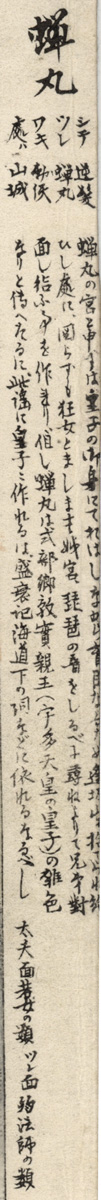 蝉丸
シテ 逆髪
ツレ 蝉丸
ワキ 勅使
処ハ 山城
蝉丸の宮と申すは皇子の御身にて
ひし処に、図らずも狂女とまします姉宮、琵琶の音をしるべに尋ねよりて兄弟対
面し給ふ事を作れり、但し蝉丸は式部卿敦実親王(宇多天皇の皇子)の雑色
なりと伝へたるに此謡に皇子に作れるは、盛衰記海道下の詞などに依れるなるべし
太夫面若女の類 ツレ面弱法師の類